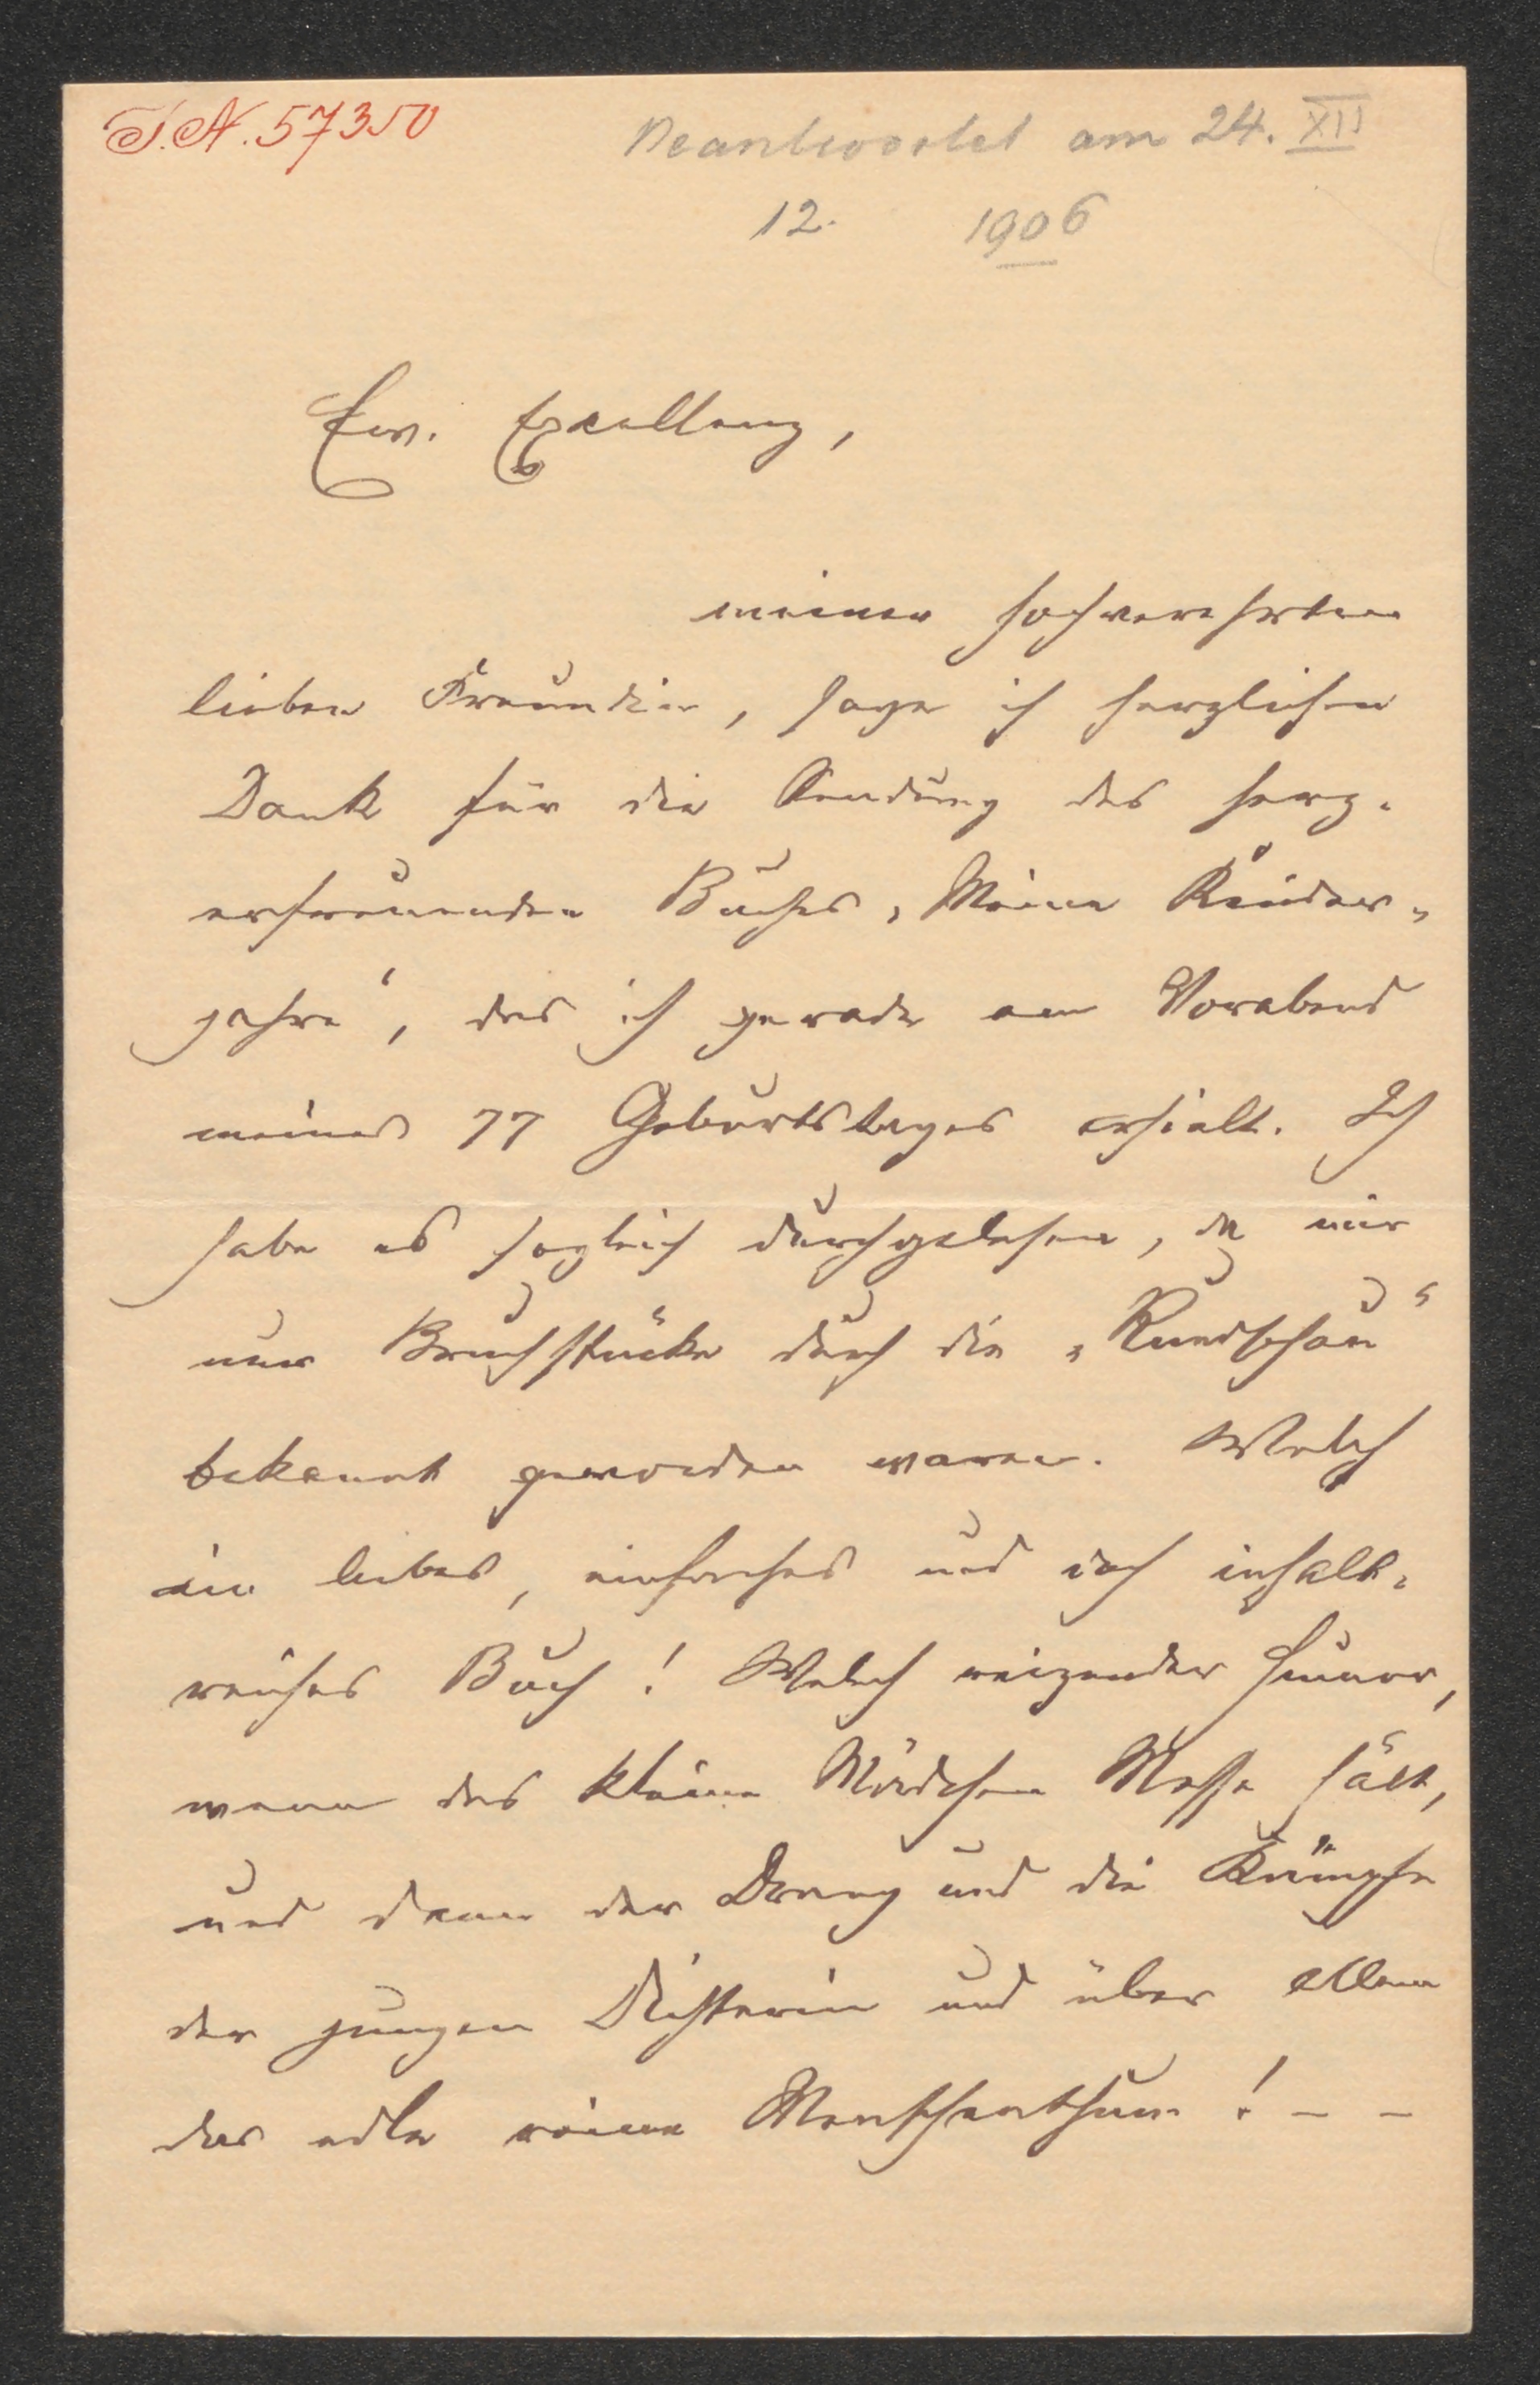 I.N. 57350
Beantwortet am 24. XII
12. 1906
Ew. Excellenz,
meiner hochverehrten
lieben Freundin, sage ich herzlichen
Dank für die Sendung des herz-
erfreuenden Buches „Meine Kinder-
jahre“, das ich gerade am Vorabend
meines 77 Geburtstages erhielt. Ich
habe es sogleich durchgelesen, da mir
nur Bruchstücke durch die „Rundschau“
bekannt geworden waren. Welch
ein liebes, einfaches und doch inhalt-
reiches Buch! Welch reizender Humor,
wenn das kleine Mädchen Messe hält,
und dann der Drang und die Kämpfe
der jungen Dichterin und über allem
das edle reine Menschenthum! – –